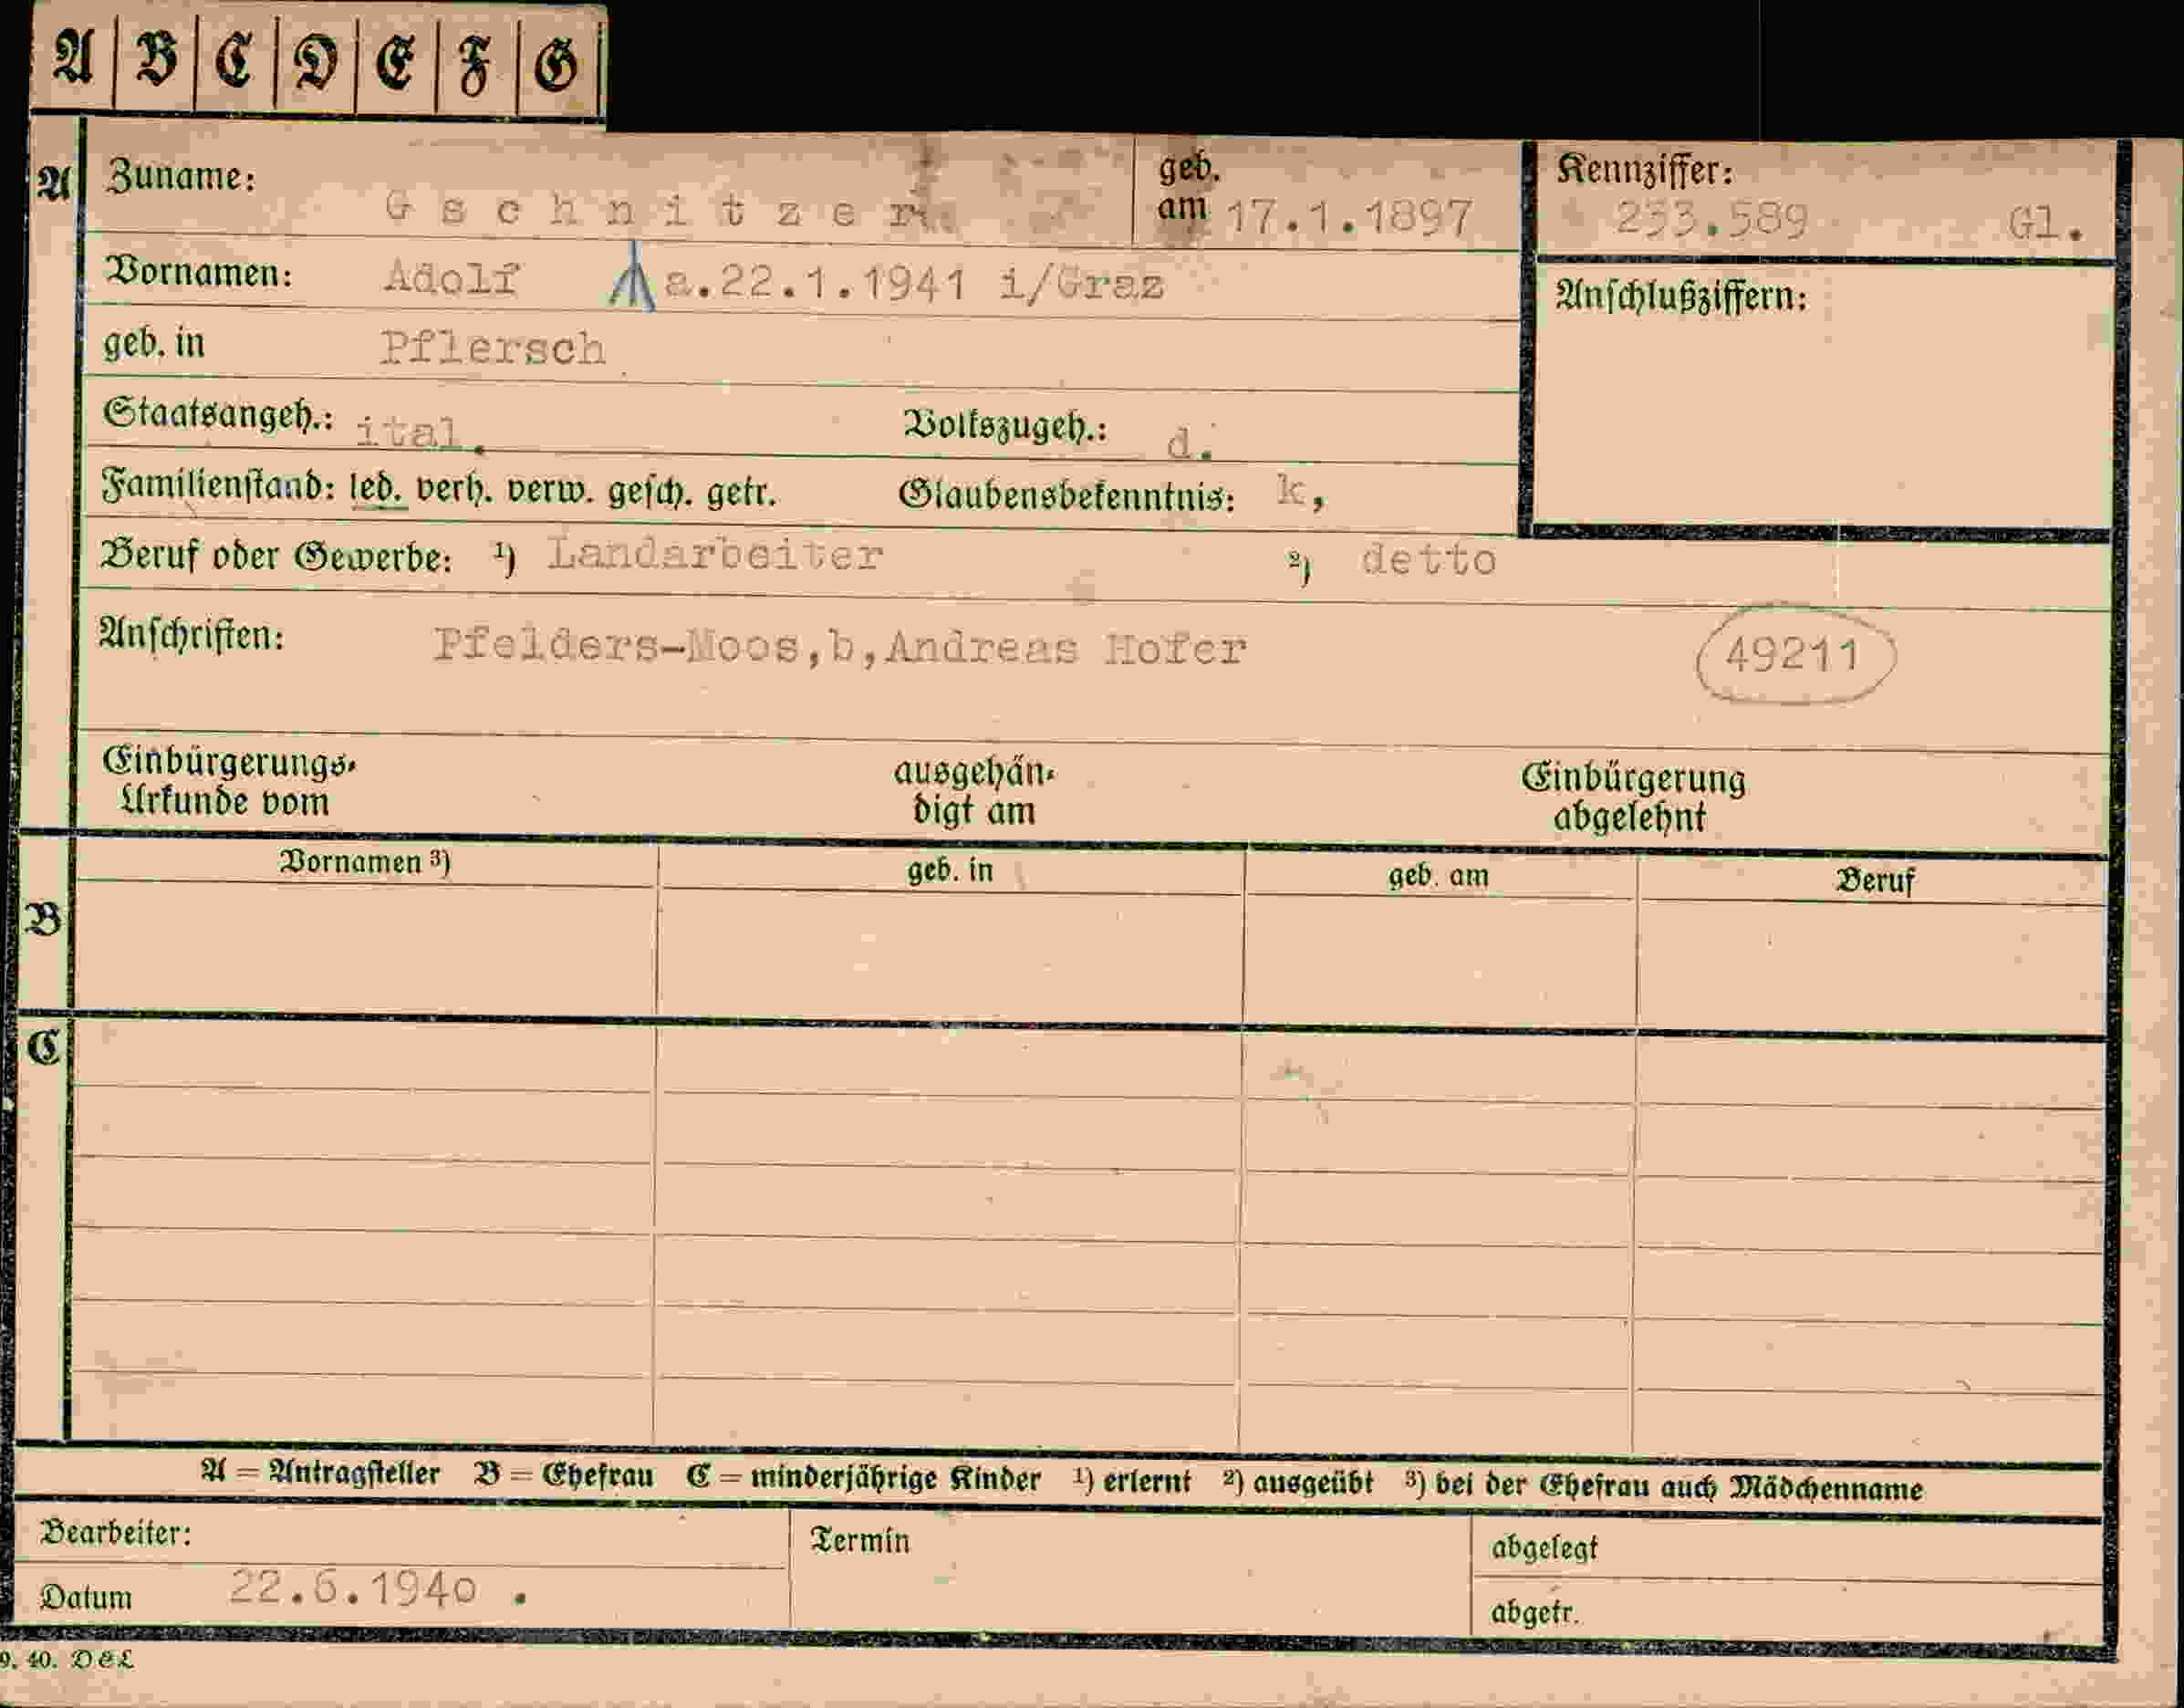 A B C D E F G
A Zuname: Gschnitzer geb. am 17.1.1897 Kennziffer: 233.589 Gl.
Vornamen: Adolf a.22.1.1941 i/Graz Anschlußziffern:
geb. in Pflersch
Staatsangeh.: ital. Volkszugeh.: d.
Familienstand: led. verh. verw. gesch. getr. Glaubensbekenntnis: k,
Beruf oder Gewerbe: 1) Landarbeiter 2) detto
Anschriften: Pfelders-Moos,b,Andreas Hofer 49211
Einbürgerungs- ausgehän- Einbürgerung
Urkunde vom digt am abgelehnt
Vornamen 3) geb. in geb. am Beruf
B
C
A = Antragsteller B = Ehefrau C = minderjährige Kinder 1) erlernt 2) ausgeübt 3) bei der Ehefrau auch Mädchenname
Bearbeiter: Termin abgelegt
Datum 22.6.1940 . abgetr.
9. 40. DEL